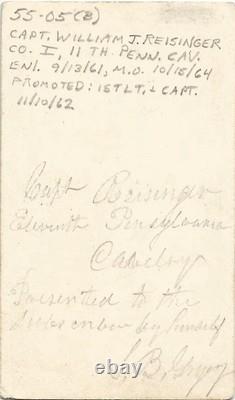 55-05(B)
CAPT. WILLIAM J. REISINGER
CO. I, 11 TH. PENN. CAV.
ENl. 9/13/61, M.O. 10/15/64
PROMOTED: 1ST LT, & CAPT.
11/10/62
Capt Reisinger
Eleventh Pensylvania
Cavelry
Presented to the
by himself
B.
ebay